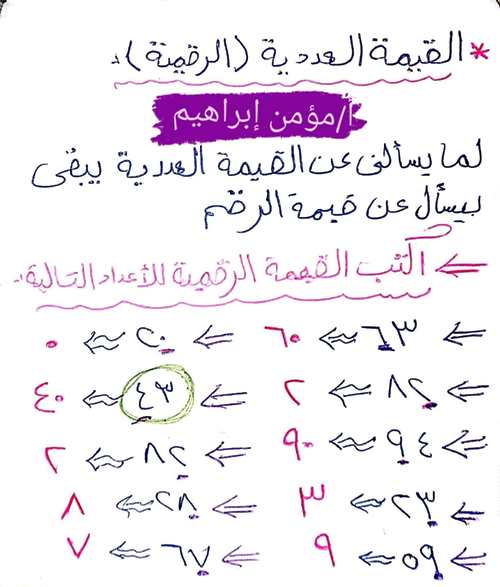 * القيمة العددية (الرقمية):
أ/مؤمن إبراهيم
لما يسألنى عن القيمة العددية يبقى
بيسأل عن قيمة الرقم
⇐ اكتب القيمة الرقمية للأعداد التالية:
⇐ ٦٣ ⇐ ٦٠
⇐ ٢٠ ⇐ ٠
⇐ ٨٢ ⇐ ٢
⇐ ٤٣ ⇐ ٤٠
⇐ ٩٤ ⇐ ٩٠
⇐ ٨٢ ⇐ ٢
⇐ ٢٣ ⇐ ٣
⇐ ٢٨ ⇐ ٨
⇐ ٥٩ ⇐ ٩
⇐ ٦٧ ⇐ ٧